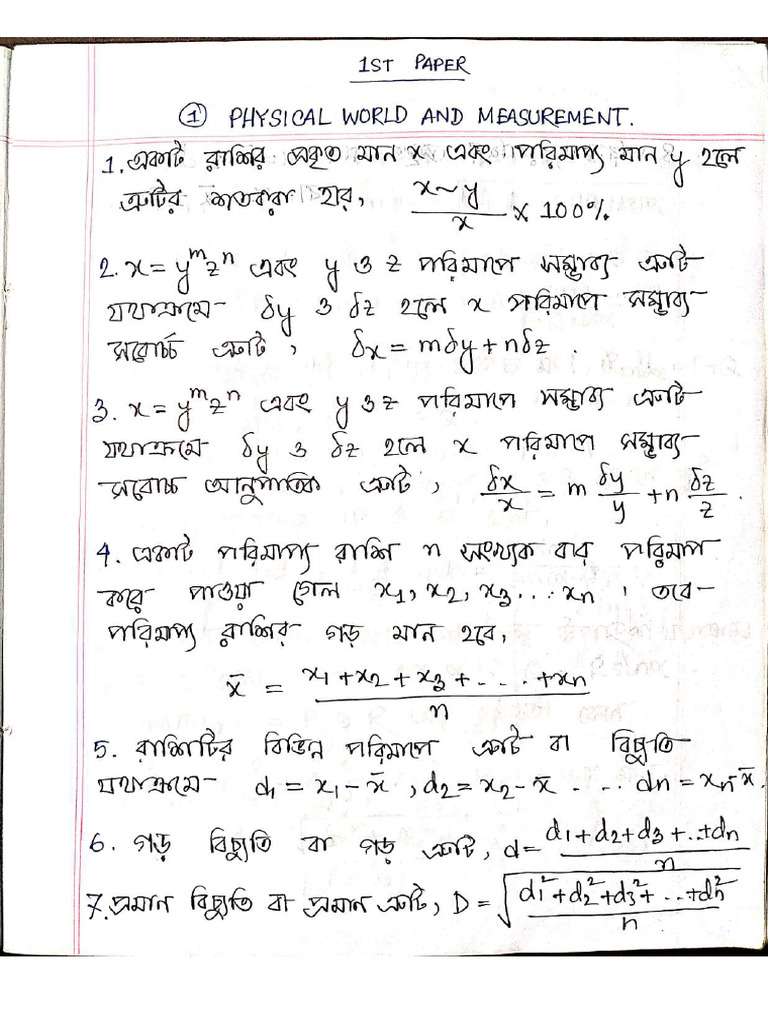 1ST PAPER
① PHYSICAL WORLD AND MEASUREMENT.
1. একটি রাশির প্রকৃত মান x এবং পরিমাপ্য মান y হলে
ত্রুটির শতকরা হার, x~y/x × 100%.
2. x = y^m z^n এবং y ও z পরিমাপে সম্ভাব্য ত্রুটি
যথাক্রমে δy ও δz হলে x পরিমাপে সম্ভাব্য
সর্বোচ্চ ত্রুটি, δx = mδy + nδz.
3. x = y^m z^n এবং y ও z পরিমাপে সম্ভাব্য ত্রুটি
যথাক্রমে δy ও δz হলে x পরিমাপে সম্ভাব্য
সবোচ্চ আনুপাতিক ত্রুটি, δx/x = m δy/y + n δz/z.
4. একটি পরিমাপ্য রাশি n সংখ্যক বার পরিমাপ
করে পাওয়া গেল x1, x2, x3 ... xn, তবে
পরিমাপ্য রাশির গড় মান হবে,
x̄ = x1 + x2 + x3 + ... + xn/n
5. রাশিটির বিভিন্ন পরিমাপে ত্রুটি বা বিচ্যুতি
যথাক্রমে d1 = x1 - x̄, d2 = x2 - x̄ ... dn = xn - x̄.
6. গড় বিচ্যুতি বা গড় ত্রুটি, d = d1 + d2 + d3 + .. + dn/n
7. প্রমান বিচ্যুতি বা প্রমান ত্রুটি, D = √d1² + d2² + d3² + ... + dn²/n